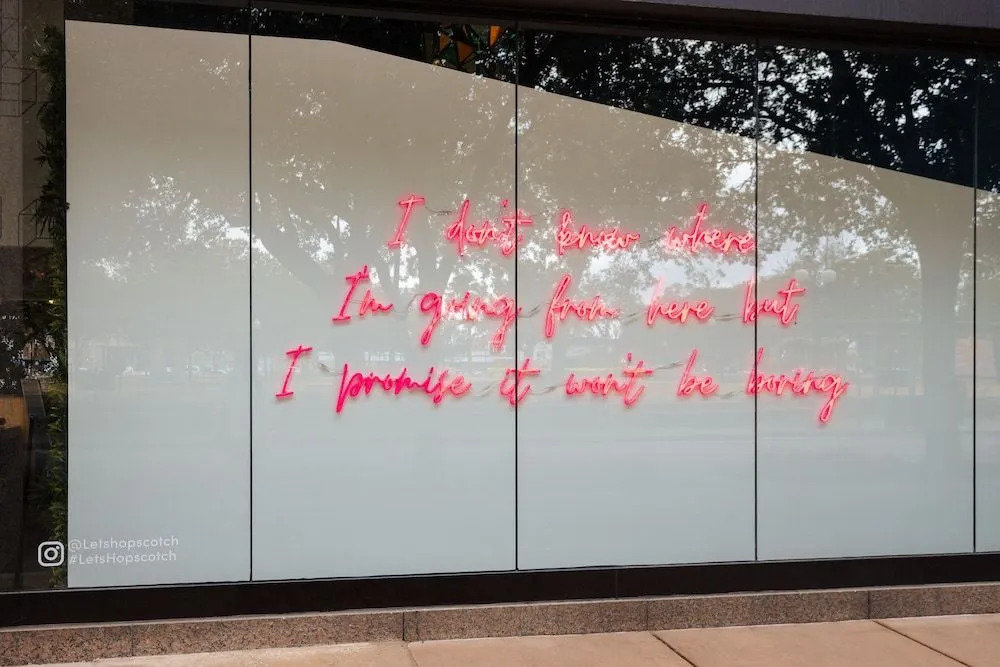 I don't know where
I'm going from here but
I promise it won't be boring
@Letshopscotch
#LetsHopscotch